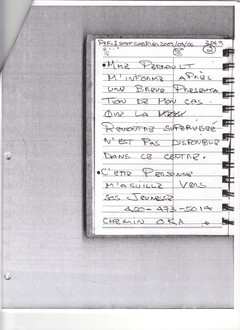 •MME PERRAULT
M'INFORME APRÈS
UNE BREVE PRESENTA
TION DE MON CAS.
QUE LA
RENCONTRE SUPERVISÉE
N'EST PAS DISPONIBLE
DANS CE CENTRE.
•CETTE PERSONNE
M'AGUILLE VERS
SES JEUNESSE
450-473-5014
CHEMIN OKA